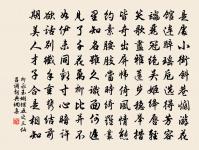 是處小街斜巷爛游花
館連醉瑤卮選得芳容
端麗冠絕吳姬絳唇輕
笑歌盡雅蓮步穩舉措
皆奇出屏幃倚風情態
約素腰肢當時綺羅叢
裏知名雖久識面何遲
見了千花萬柳比並不
如伊未同歡寸心暗許
欲話別纖手重攜結前
期美人才子合是相知
柳永玉蝴蝶五之三仙
呂調